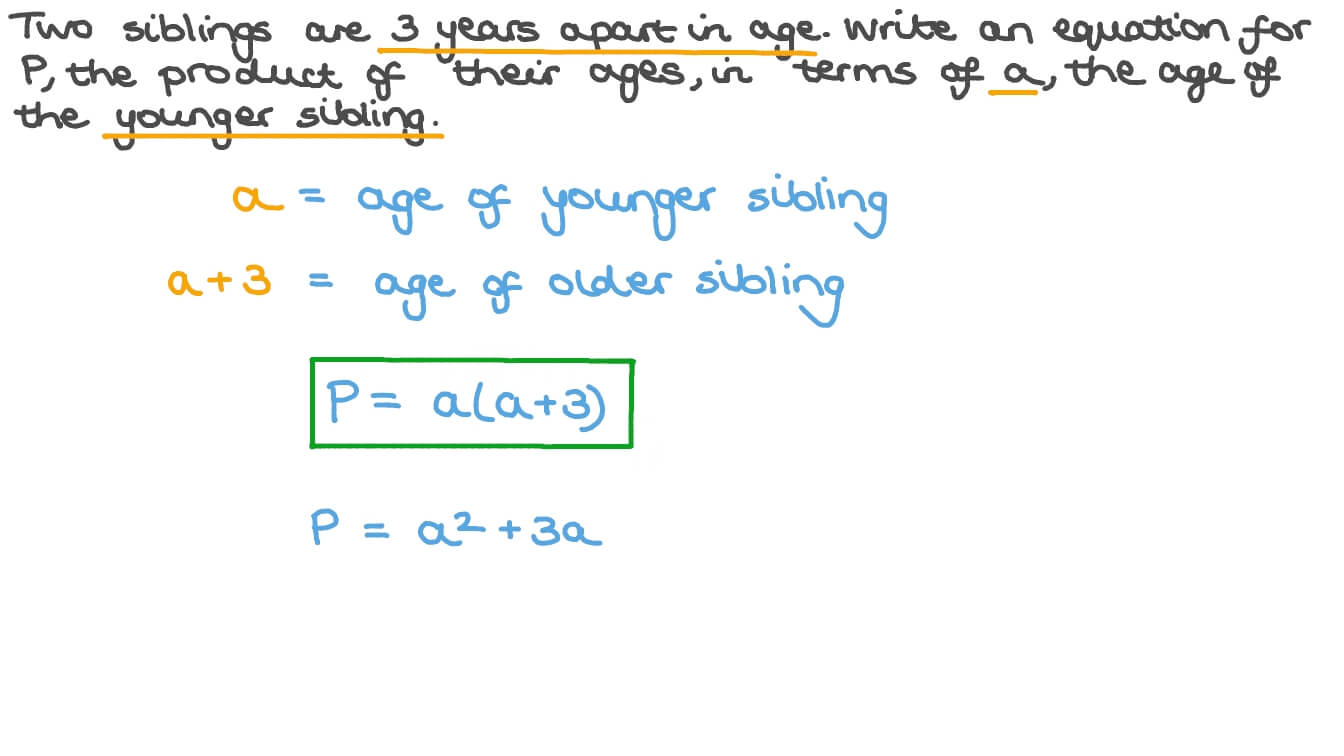 Two siblings are 3 years apart in age. Write an equation for
P, the product of their ages, in terms of a, the age of
the younger sibling.
a = age of younger sibling
a+3 = age of older sibling
P = a(a+3)
P = a² + 3a